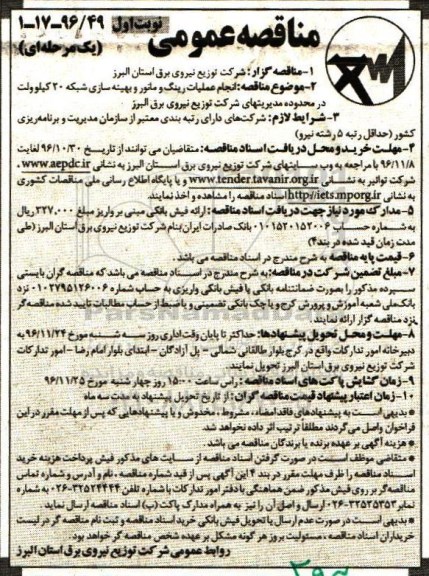 مناقصه عمومی
نوبت اول
۱-۱۷-۹۶/۴۹
(یک مرحله ای)
۱-مناقصه گزار: شرکت توزیع نیروی برق استان البرز
۲-موضوع مناقصه: انجام عملیات رینگ و مانور و بهینه سازی شبکه ۲۰ کیلوولت
در محدوده مدیریتهای شرکت توزیع نیروی برق البرز
۳- شرایط لازم: شرکت‌های دارای رتبه بندی معتبر از سازمان مدیریت و برنامه‌ریزی
کشور (حداقل رتبه ۵ رشته نیرو)
۴-مهلت خرید و محل دریافت اسناد مناقصه: متقاضیان می توانند از تاریخ ۹۶/۱۰/۳۰ لغایت
۹۶/۱۱/۸ با مراجعه به وب سایتهای شرکت توزیع نیروی برق استان البرز به نشانی www.aepdc.ir،
شرکت توانیر به نشانی www.tender.tavanir.org.ir و یا پایگاه اطلاع رسانی ملی مناقصات کشوری
به نشانی http://iets.mporg.ir اسناد مناقصه را مشاهده و اخذ نمایند.
۵-مدارک مورد نیاز جهت دریافت اسناد مناقصه: ارائه فیش بانکی مبنی بر واریز مبلغ ۲۲۷,۰۰۰ ریال
به شماره حساب ۰۱۰۱۵۲۰۱۵۲۰۰۶ بانک صادرات ایران بنام شرکت توزیع نیروی برق استان البرز (طی
مدت زمان قید شده در بند۴)
۶-قیمت پایه مناقصه به شرح مندرج در اسناد مناقصه می باشد.
۷-مبلغ تضمین شرکت در مناقصه: به شرح مندرج در اسناد مناقصه می باشد که مناقصه گران بایستی
سپرده مذکور را بصورت ضمانتنامه بانکی یا فیش بانکی واریزی به حساب شماره ۰۱۰۲۷۹۵۱۲۶۰۰۶ نزد
بانک ملی شعبه آموزش و پرورش کرج و یا چک بانکی تضمینی و یا ضبط از حساب مطالبات تایید شده مناقصه گر
نزد مناقصه گزار ارائه نمایند.
۸-مهلت و محل تحویل پیشنهادها: حداکثر تا پایان وقت اداری روز سه شنبه مورخ ۹۶/۱۱/۲۴ به
دبیرخانه امور تدارکات واقع در کرج بلوار طالقانی شمالی - پل آزادگان - ابتدای بلوار امام رضا - امور تدارکات
شرکت توزیع نیروی برق استان البرز تحویل نمایند.
۹-زمان گشایش پاکت های اسناد مناقصه: راس ساعت ۱۵:۰۰ روز چهار شنبه مورخ ۹۶/۱۱/۲۵
۱۰-زمان اعتبار پیشنهاد قیمت مناقصه گران: از تاریخ تحویل پیشنهاد به مدت سه ماه
* بدیهی است به پیشنهادهای فاقد امضاء، مشروط، مخدوش و یا پیشنهادهایی که پس از مهلت مقرر در این
فراخوان واصل می گردند مطلقا ترتیب اثر داده نخواهد شد.
* هزینه آگهی بر عهده برنده یا برندگان مناقصه می باشد.
* متقاضی موظف است در صورت گرفتن اسناد مناقصه از سایت های مذکور فیش پرداخت هزینه خرید
اسناد مناقصه را ظرف مهلت مقرر در بند ۴ این آگهی پس از قید شماره مناقصه، نام و آدرس و شماره تماس
مناقصه گر بر روی فیش مذکور ضمن هماهنگی با دفتر امور تدارکات با شماره تلفن ۳۲۵۲۴۴۴۴-۰۲۶ به شماره
نمابر ۳۲۵۲۵۲۵۳-۰۲۶ ارسال و اصل آن را نیز به همراه مدارک پاکت (ب) اسناد مناقصه ارسال نماید.
* بدیهی است در صورت عدم ارسال یا تحویل فیش بانکی خرید اسناد مناقصه و ثبت نام مناقصه گر در لیست
خریداران اسناد مناقصه، مسئولیت بروز هر گونه مشکل بر عهده شخص مناقصه گر خواهد بود.
روابط عمومی شرکت توزیع نیروی برق استان البرز